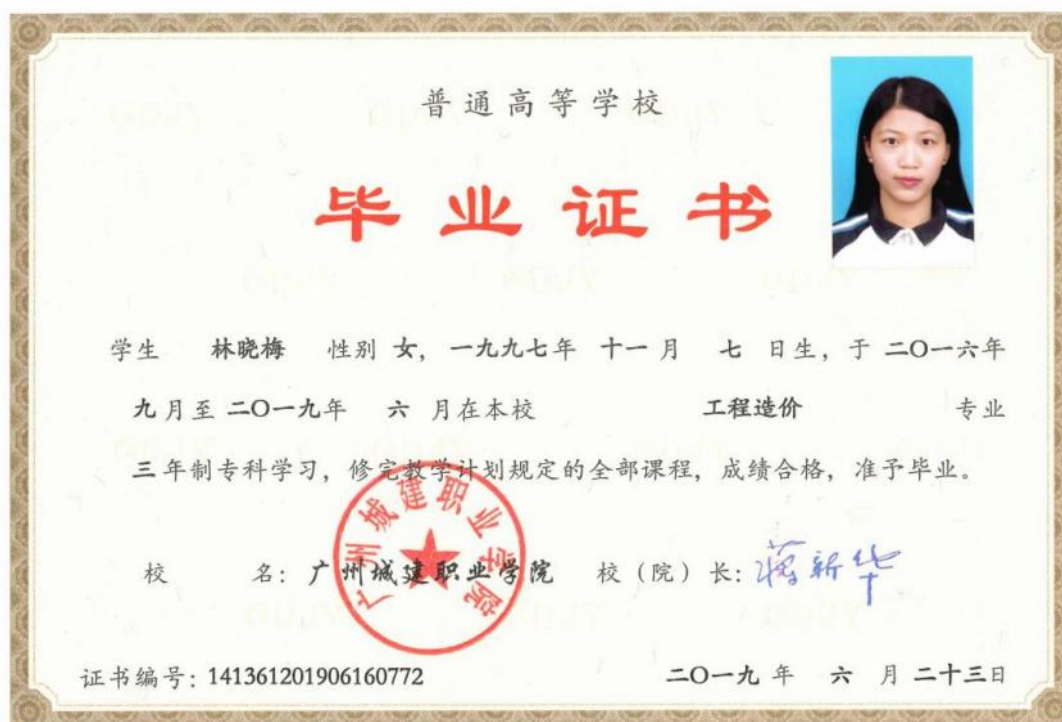 普通高等学校
毕业证书
学生 林晓梅 性别 女，一九九七年 十一月 七 日生，于 二〇一六年
九月至 二〇一九年 六 月在本校 工程造价 专业
三年制专科学习，修完教学计划规定的全部课程，成绩合格，准予毕业。
广州城建职业学院
校 名：广州城建职业学院 校（院）长：蒋新华
证书编号：141361201906160772 二〇一九 年 六 月 二十三日